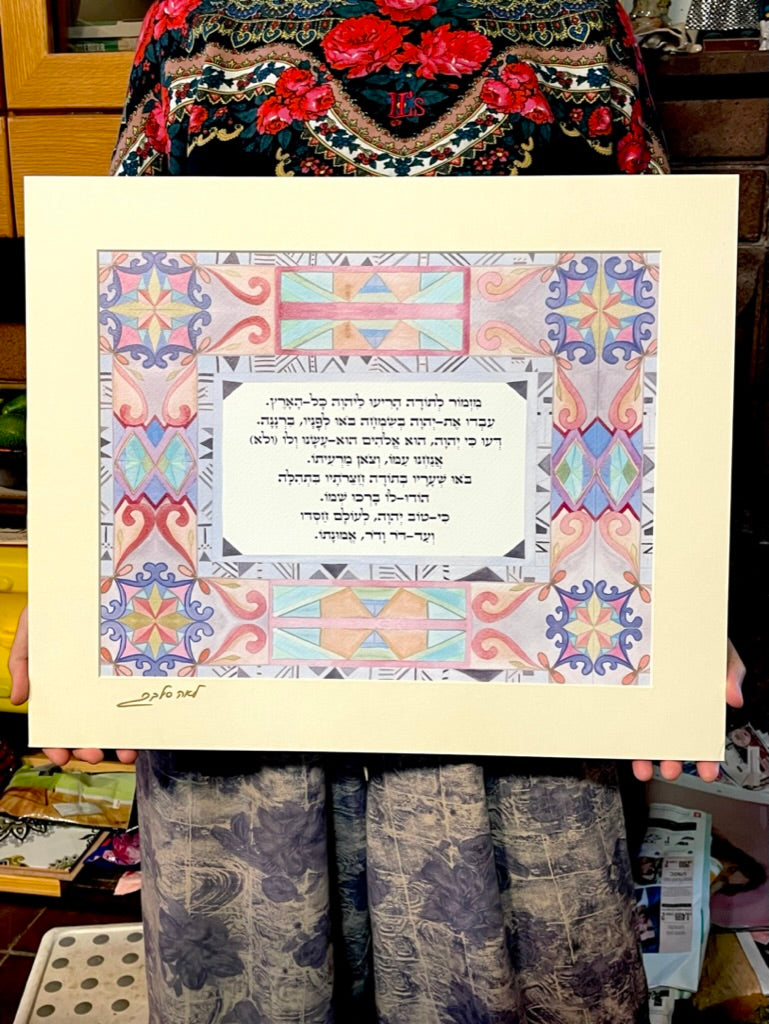 IEs
מִזְמוֹר לְתוֹדָה הָרִיעוּ לַיהוָה כָּל-הָאָרֶץ.
עִבְדוּ אֶת-יְהוָה בְּשִׂמְחָה בֹּאוּ לְפָנָיו, בִּרְנָנָה.
דְּעוּ כִּי יְהוָה, הוּא אֱלֹהִים הוּא-עָשָׂנוּ וְלוֹ (ולא)
אֲנַחְנוּ עַמּוֹ, וְצֹאן מַרְעִיתוֹ.
בֹּאוּ שְׁעָרָיו בְּתוֹדָה חֲצֵרֹתָיו בִּתְהִלָּה
הוֹדוּ-לוֹ בָּרְכוּ שְׁמוֹ.
כִּי-טוֹב יְהוָה, לְעוֹלָם חַסְדּוֹ
וְעַד-דֹּר וָדֹר, אֱמוּנָתוֹ.
לאה